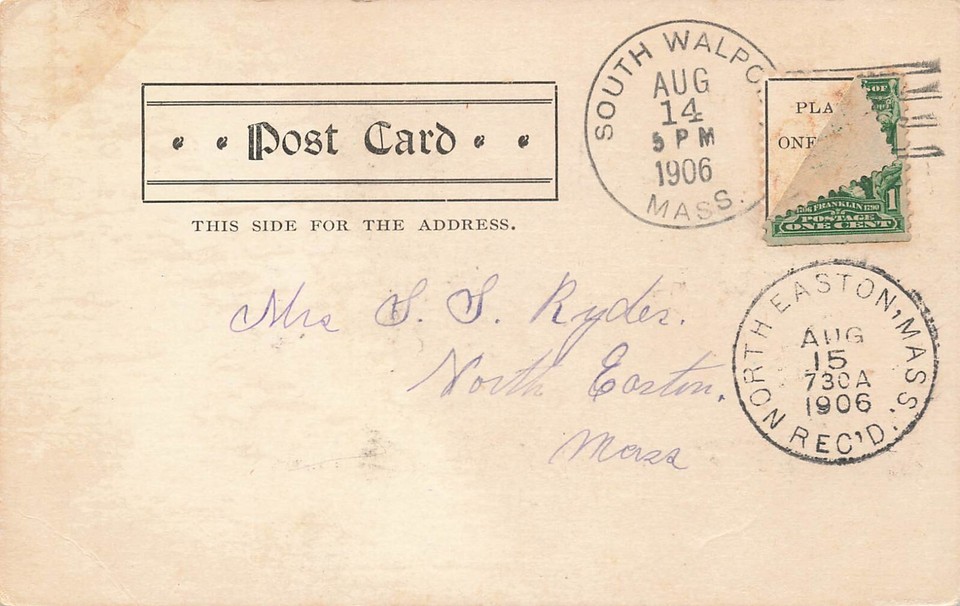 Post Card
THIS SIDE FOR THE ADDRESS.
SOUTH WALPO
AUG
14
5 PM
1906
MASS.
PLA
ONE
S OF
1
1706 FRANKLIN 1790
POSTAGE
ONE CENT
Mrs S. S. Ryder.
North Easton,
Mass
NORTH EASTON, MASS.
AUG
15
730A
1906
REC'D.